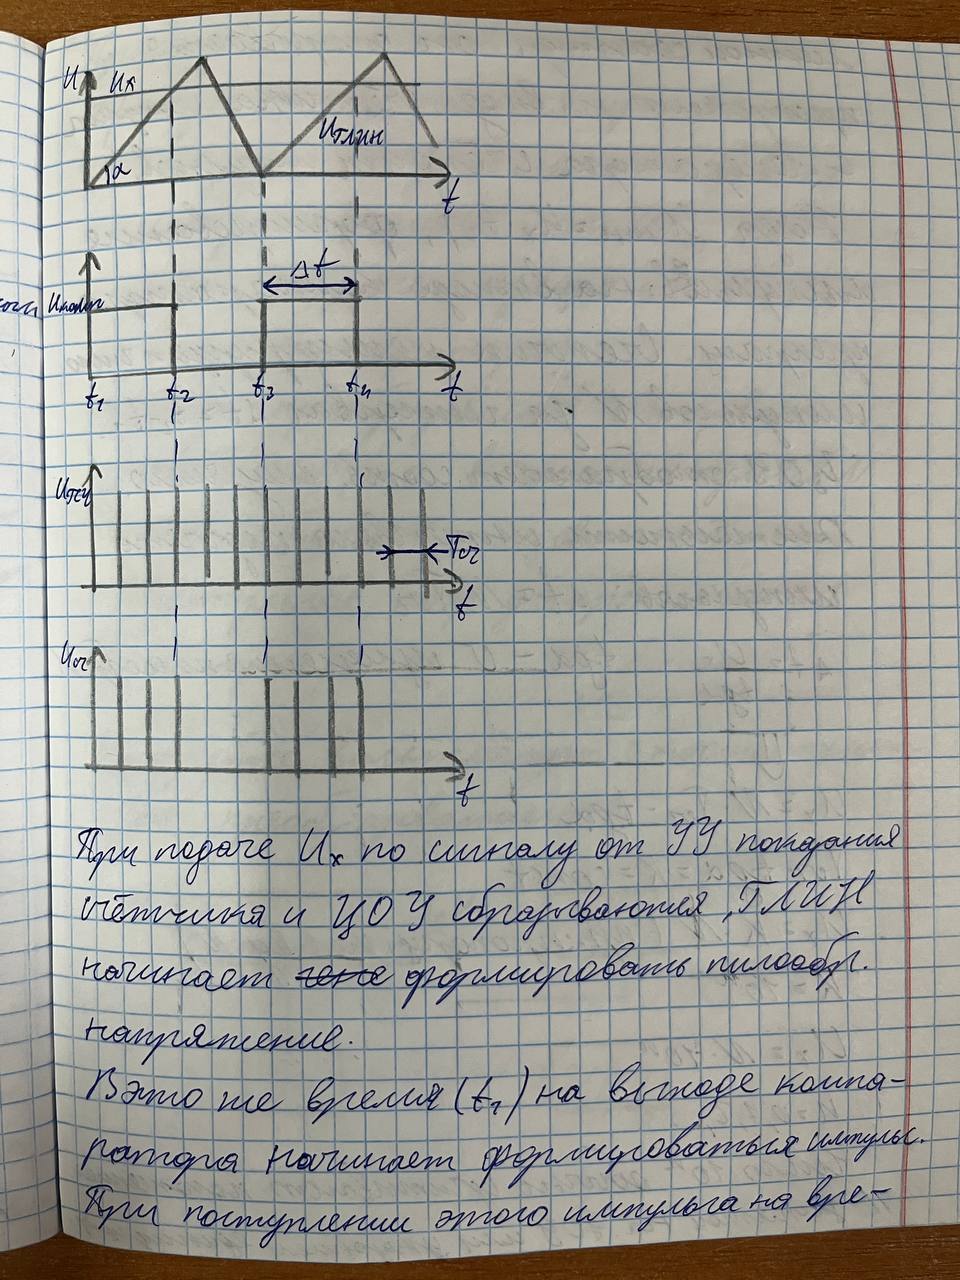 U
Uх
α
Uглин
t
Δt
Uкомп
t
t₁ t₂ t₃ t₄
Uгсч
Tсч
t
Uсч
t
При подаче Uх по сигналу от УУ показания
счётчика и ЦОУ сбразываются, ГЛИН
начинает формировать пилообр.
напряжение.
В это же время (t₁) на выходе компа-
ратора начинает формироваться импульс.
При поступлении этого импульса на вре-